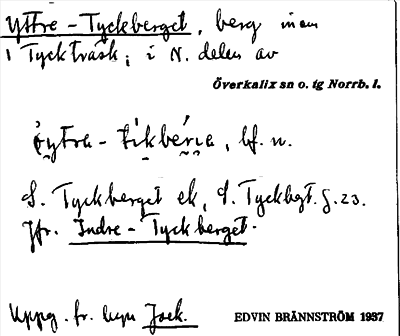 Yttre-Tyckberget, berg inom
1 Tyckträsk; i N. delen av
Överkalix sn o. tg Norrb. l.
öytra-tikbérıa, bf. n.
S. Tyckberget ek, S. Tyckbgt. g. 23.
Jfr. Indre-Tyckberget.
Uppg. fr. byn Jock.
EDVIN BRÄNNSTRÖM 1937